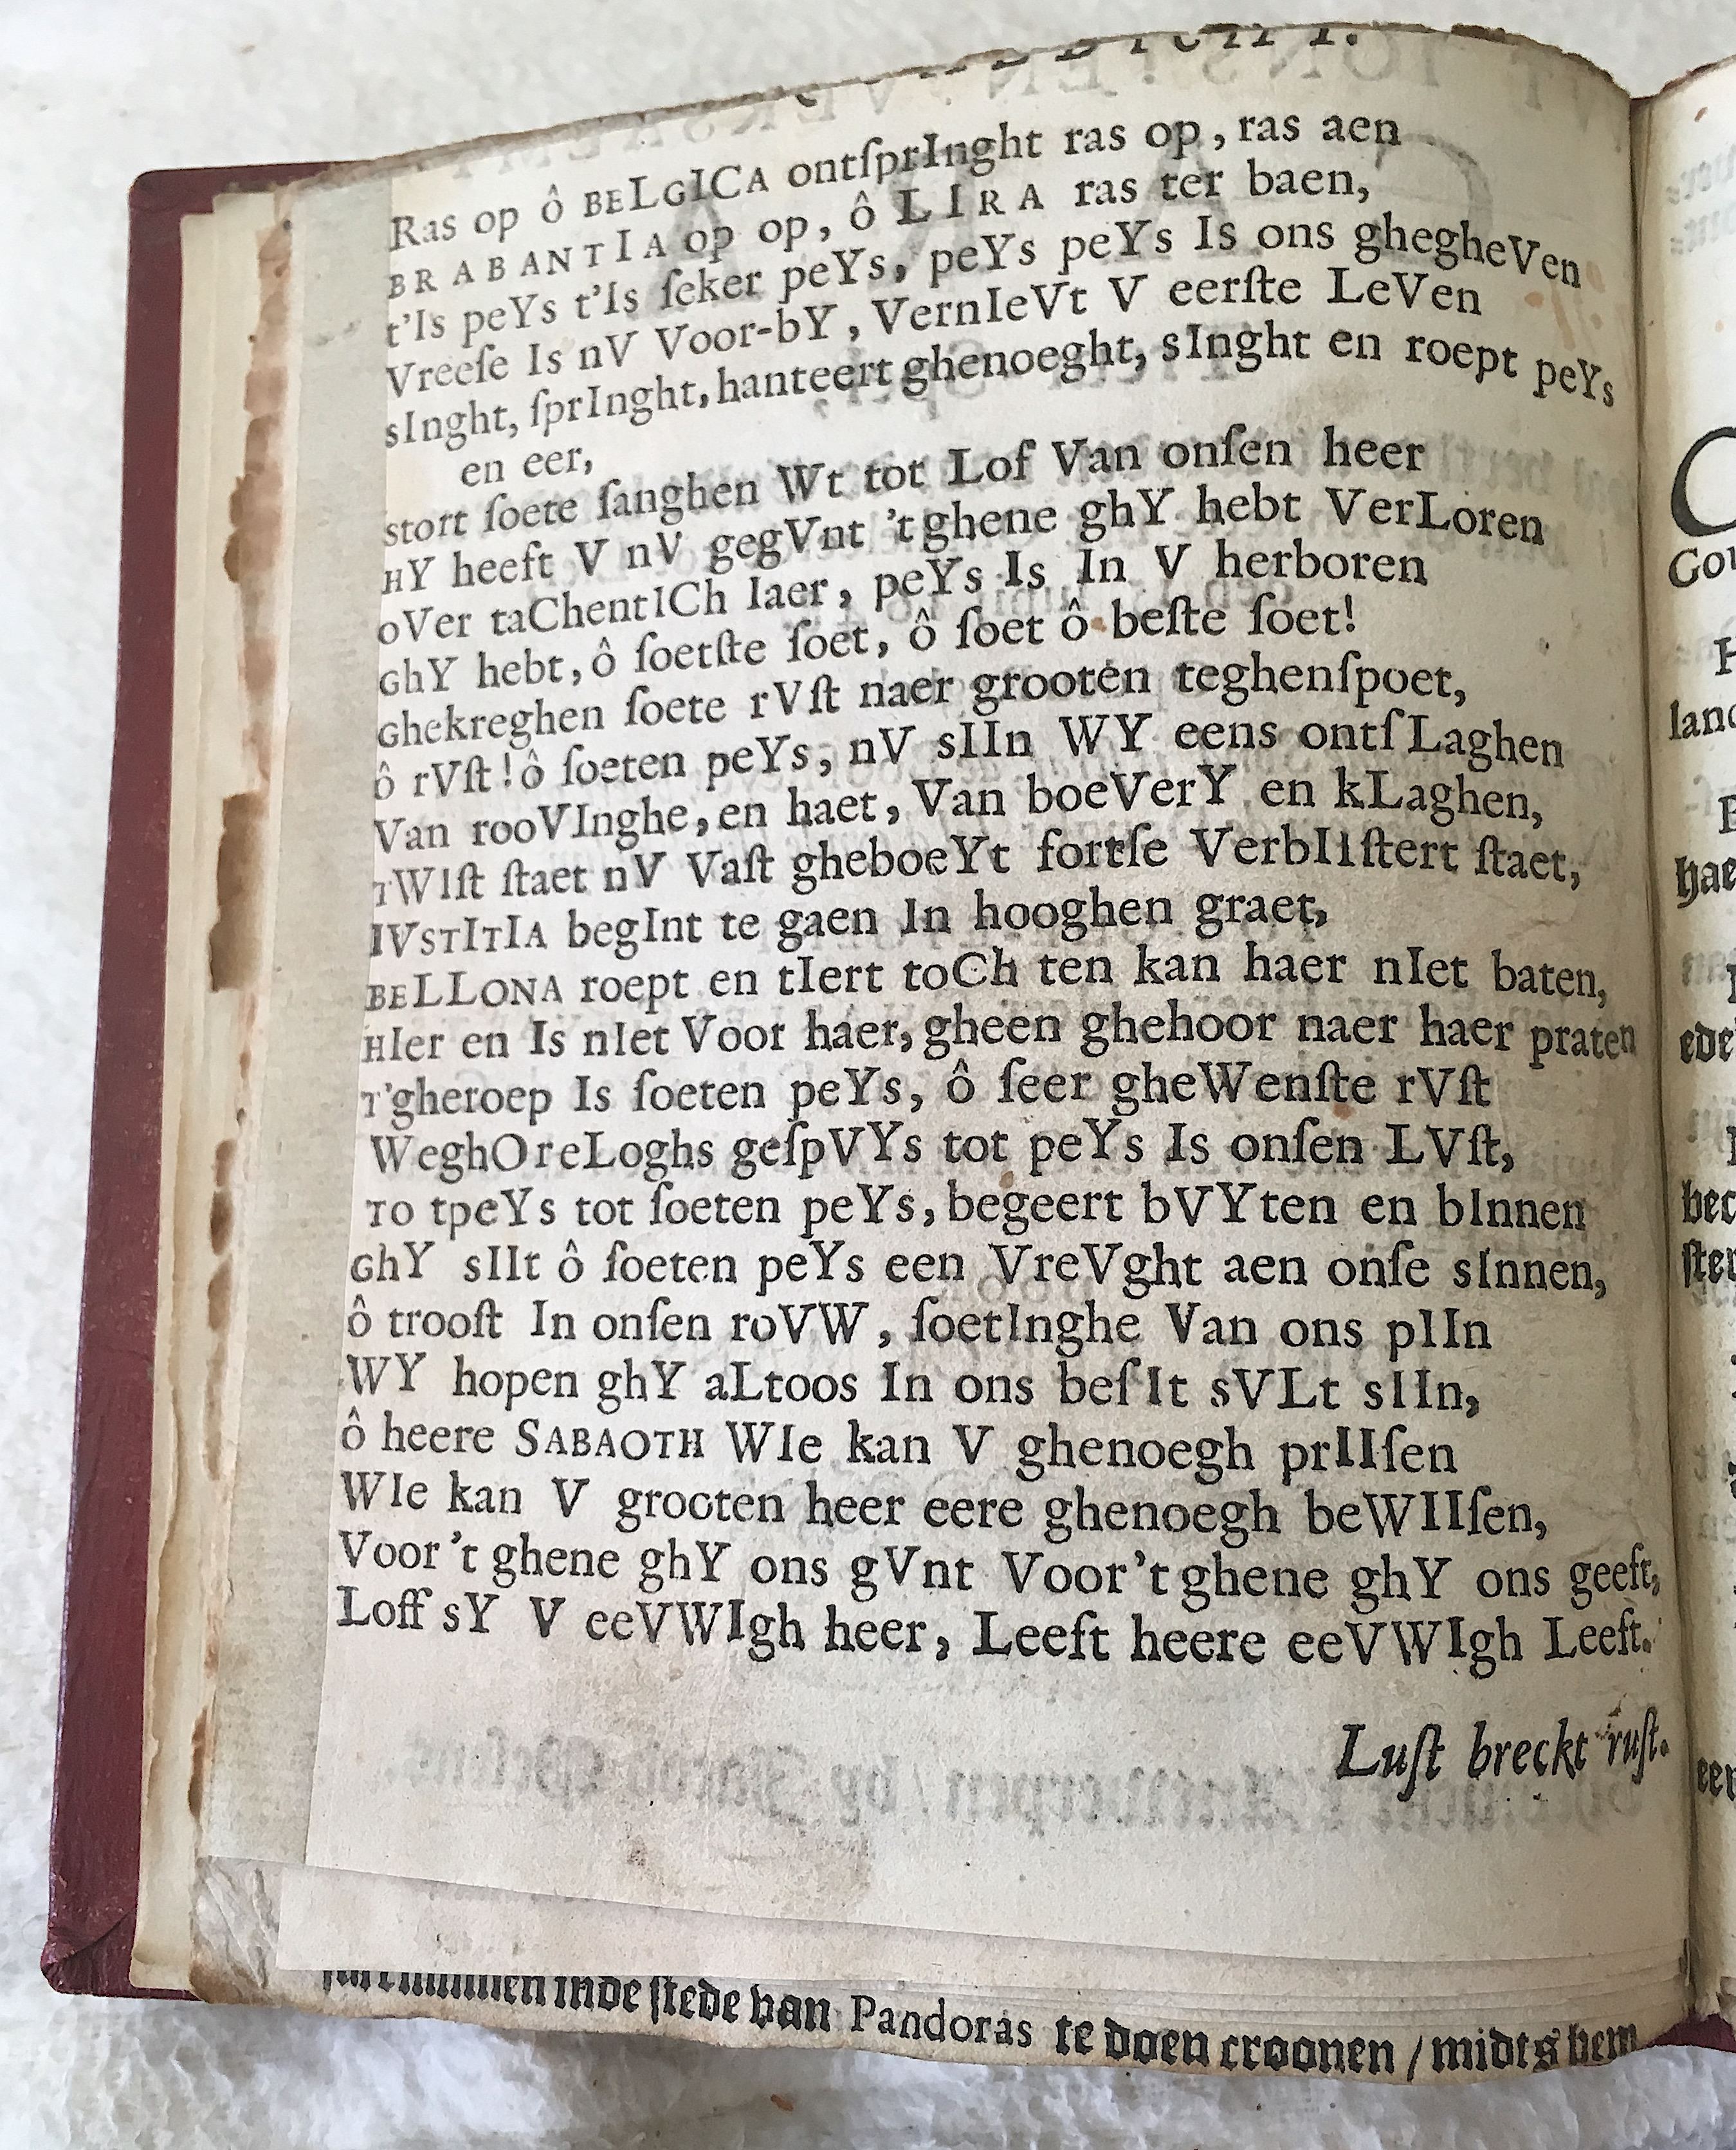 Ras op ô BELGICA ontſprInght ras op, ras aen
BRABANTIA op op, ô LIRA ras ter baen,
t'Is peYs t'Is ſeker peYs, peYs peYs Is ons ghegheVen
Vreeſe Is nV Voor-bY, VernIeVt V eerſte LeVen
sInght, ſprInght, hanteert ghenoeght, sInght en roept peYs
en eer,
stort ſoete ſanghen Wt tot Lof Van onſen heer
HY heeft V nV gegVnt 't ghene ghY hebt VerLoren
oVer taChentICh Iaer, peYs Is In V herboren
GhY hebt, ô ſoetſte ſoet, ô ſoet ô beſte ſoet!
Ghekreghen ſoete rVſt naer grooten teghenſpoet,
ô rVſt! ô ſoeten peYs, nV sIIn WY eens ontſLaghen
Van rooVInghe, en haet, Van boeVerY en kLaghen,
TWIſt ſtaet nV Vaſt gheboeYt fortſe VerbIIſtert ſtaet,
IVSTITIA begInt te gaen In hooghen graet,
BELLONA roept en tIert toCh ten kan haer nIet baten,
HIer en Is nIet Voor haer, gheen ghehoor naer haer praten
T'gheroep Is ſoeten peYs, ô ſeer gheWenſte rVſt
WeghOreLoghs geſpVYs tot peYs Is onſen LVſt,
TO tpeYs tot ſoeten peYs, begeert bVYten en bInnen
GhY sIIt ô ſoeten peYs een VreVght aen onſe sInnen,
ô trooſt In onſen roVW, ſoetInghe Van ons pIIn
WY hopen ghY aLtoos In ons beſIt sVLt sIIn,
ô heere SABAOTH WIe kan V ghenoegh prIIſen
WIe kan V grooten heer eere ghenoegh beWIIſen,
Voor 't ghene ghY ons gVnt Voor 't ghene ghY ons geeft,
Loff sY V eeVWIgh heer, Leeft heere eeVWIgh Leeft.
Luſt breckt ruſt.
inde ſtede van Pandoras te doen croonen / midts hem